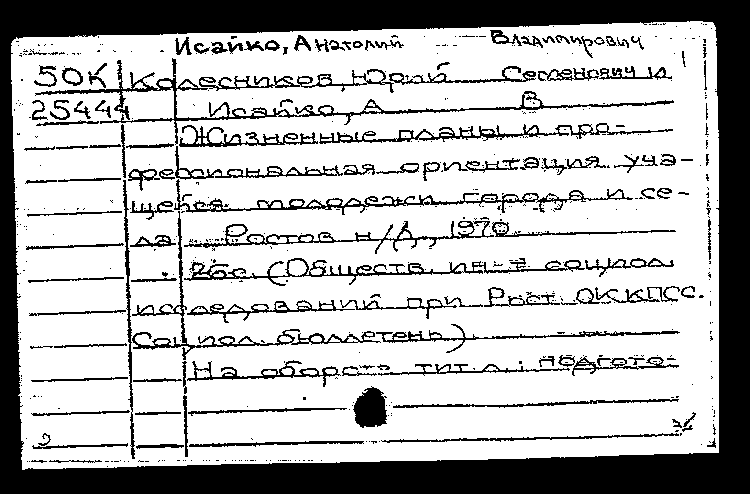 Исайко, Анатолий Владимирович
50К Колесников, Юрий Семенович и
25444 Исайко, А В
Жизненные планы и про-
фессиональная ориентация уча-
щейся молодежи города и се-
ла Ростов н/Д., 1970
26с. (Обществ. ин-т социол.
исследований при Рост. ОК КПСС.
Социол. бюллетень)
На обороте тит. л.: подгото-